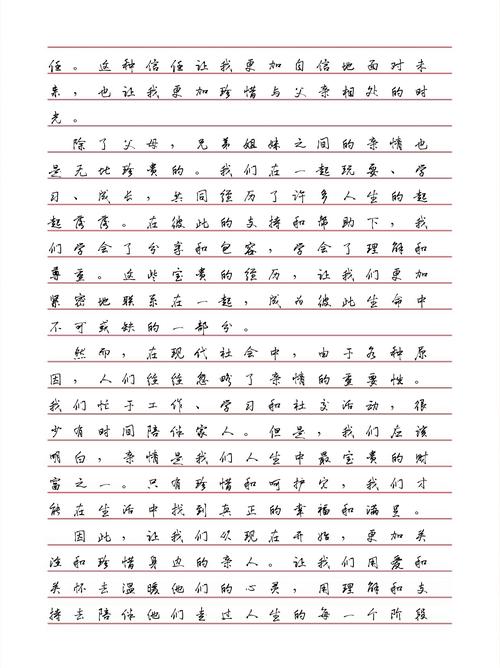 任。这种信任让我更加自信地面对未
来，也让我更加珍惜与父亲相处的时
光。
除了父母，兄弟姐妹之间的亲情也
是无比珍贵的。我们在一起玩耍、学
习、成长，共同经历了许多人生的起
起落落。在彼此的支持和帮助下，我
们学会了分享和包容，学会了理解和
尊重。这些宝贵的经历，让我们更加
紧密地联系在一起，成为彼此生命中
不可或缺的一部分。
然而，在现代社会中，由于各种原
因，人们往往忽略了亲情的重要性。
我们忙于工作、学习和社交活动，很
少有时间陪伴家人。但是，我们应该
明白，亲情是我们人生中最宝贵的财
富之一。只有珍惜和呵护它，我们才
能在生活中找到真正的幸福和满足。
因此，让我们从现在开始，更加关
注和珍惜身边的亲人。让我们用爱和
关怀去温暖他们的心灵，用理解和支
持去陪伴他们走过人生的每一个阶段